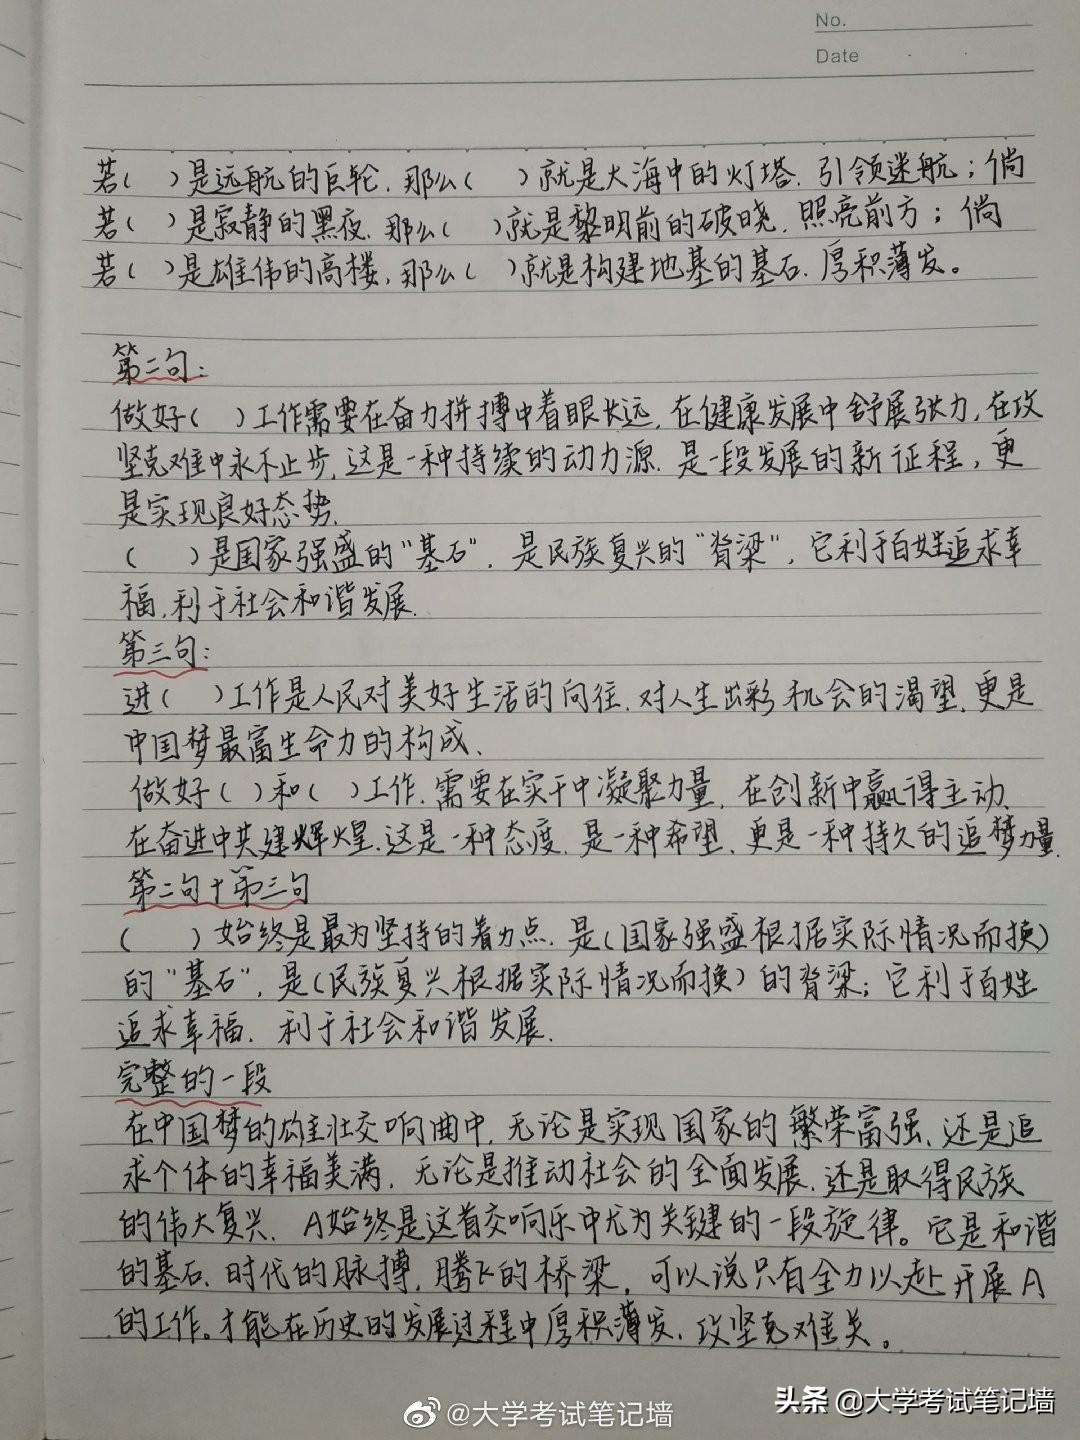 No.
Date
若( )是远航的巨轮,那么( )就是大海中的灯塔,引领迷航;倘
若( )是寂静的黑夜,那么( )就是黎明前的破晓,照亮前方;倘
若( )是雄伟的高楼,那么( )就是构建地基的基石,厚积薄发。
第二句:
做好( )工作需要在奋力拼搏中着眼长远,在健康发展中舒展张力,在攻
坚克难中永不止步,这是一种持续的动力源,是一段发展的新征程,更
是实现良好态势.
( )是国家强盛的"基石",是民族复兴的"脊梁",它利于百姓追求幸
福,利于社会和谐发展.
第三句:
进( )工作是人民对美好生活的向往,对人生出彩机会的渴望,更是
中国梦最富生命力的构成.
做好( )和( )工作,需要在实干中凝聚力量,在创新中赢得主动,
在奋进中共建辉煌.这是一种态度,是一种希望,更是一种持久的追梦力量.
第二句+第三句
( )始终是最为坚持的着力点,是(国家强盛根据实际情况而换)
的"基石",是(民族复兴根据实际情况而换)的脊梁;它利于百姓
追求幸福,利于社会和谐发展.
完整的一段
在中国梦的雄壮交响曲中,无论是实现国家的繁荣富强,还是追
求个体的幸福美满,无论是推动社会的全面发展,还是取得民族
的伟大复兴,A始终是这首交响乐中尤为关键的一段旋律。它是和谐
的基石,时代的脉搏,腾飞的桥梁,可以说只有全力以赴开展A
的工作。才能在历史的发展过程中厚积薄发,攻坚克难关。
@大学考试笔记墙
头条@大学考试笔记墙